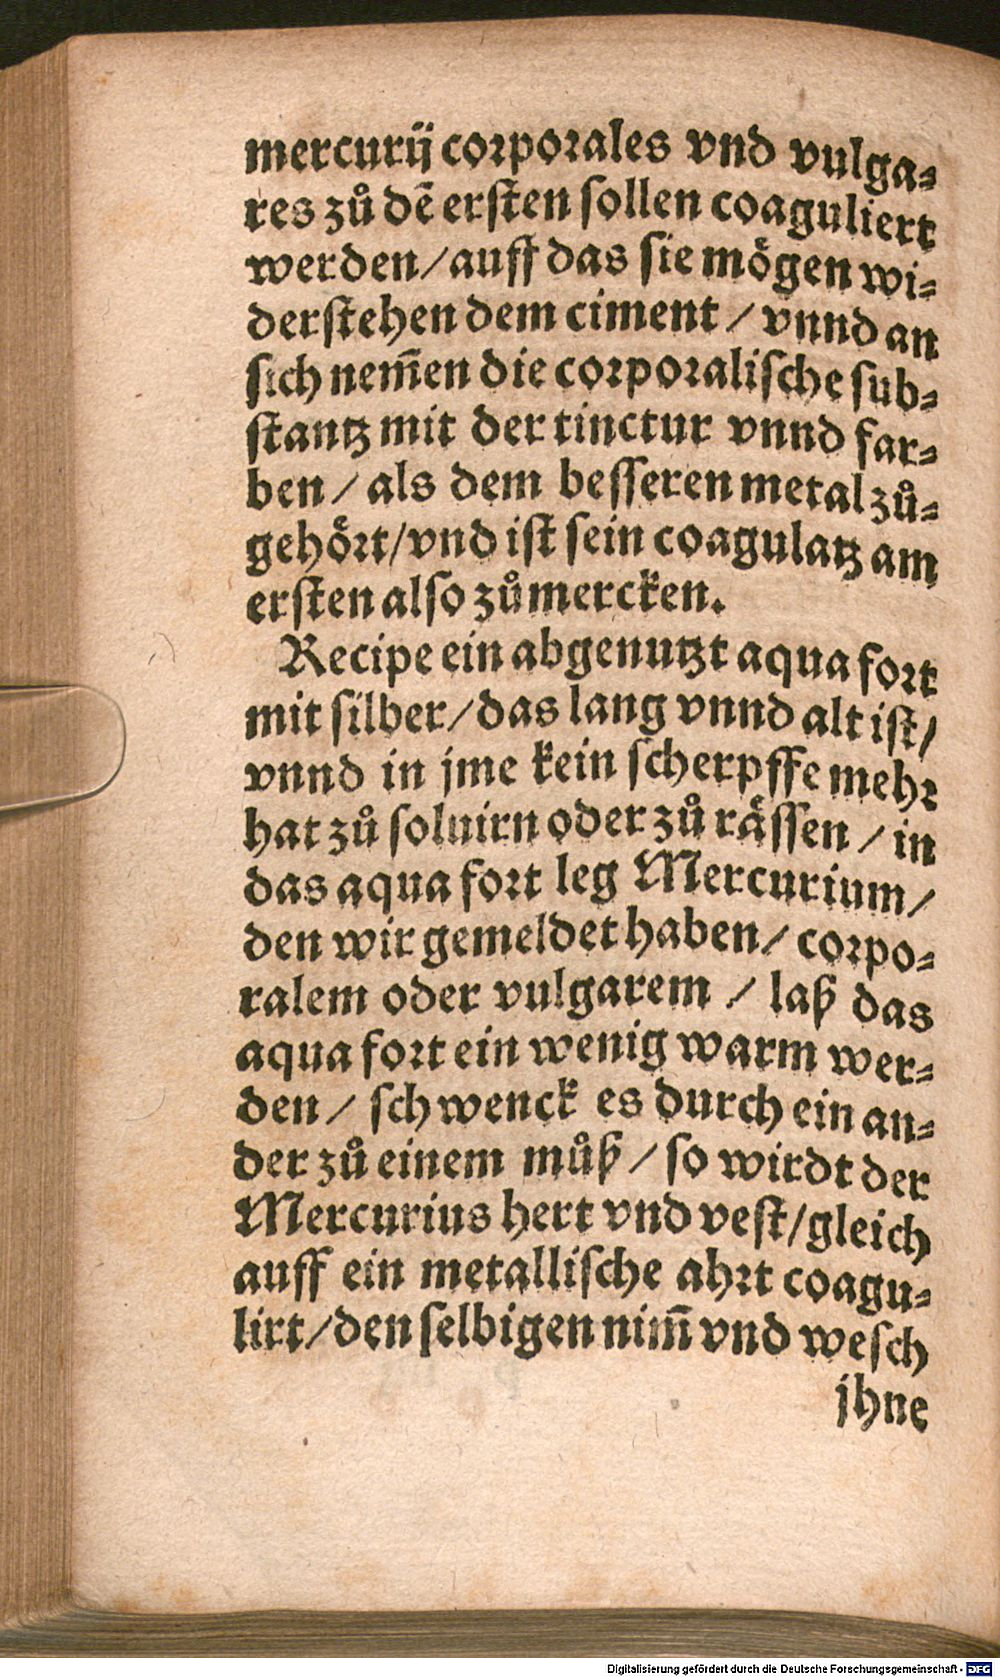 mercurij corporales vnd vulga⸗
res zů dē ersten sollen coaguliert
werden/auff das sie mögen wi⸗
derstehen dem ciment / vnnd an
sich nem̄en die corporalische sub⸗
stantz mit der tinctur vnnd far⸗
ben / als dem besseren metal zů⸗
gehört/vnd ist sein coagulatz am
ersten also zů mercken.
Recipe ein abgenutzt aqua fort
mit silber/das lang vnnd alt ist/
vnnd in jme kein scherpffe mehr
hat zů soluirn oder zů rässen / in
das aqua fort leg Mercurium/
den wir gemeldet haben/ corpo⸗
ralem oder vulgarem / laß das
aqua fort ein wenig warm wer⸗
den / schwenck es durch ein an⸗
der zů einem můß / so wirdt der
Mercurius hert vnd vest/gleich
auff ein metallische ahrt coagu⸗
lirt/den selbigen nim̄ vnd wesch
jhne
Digitalisierung gefördert durch die Deutsche Forschungsgemeinschaft - DFG